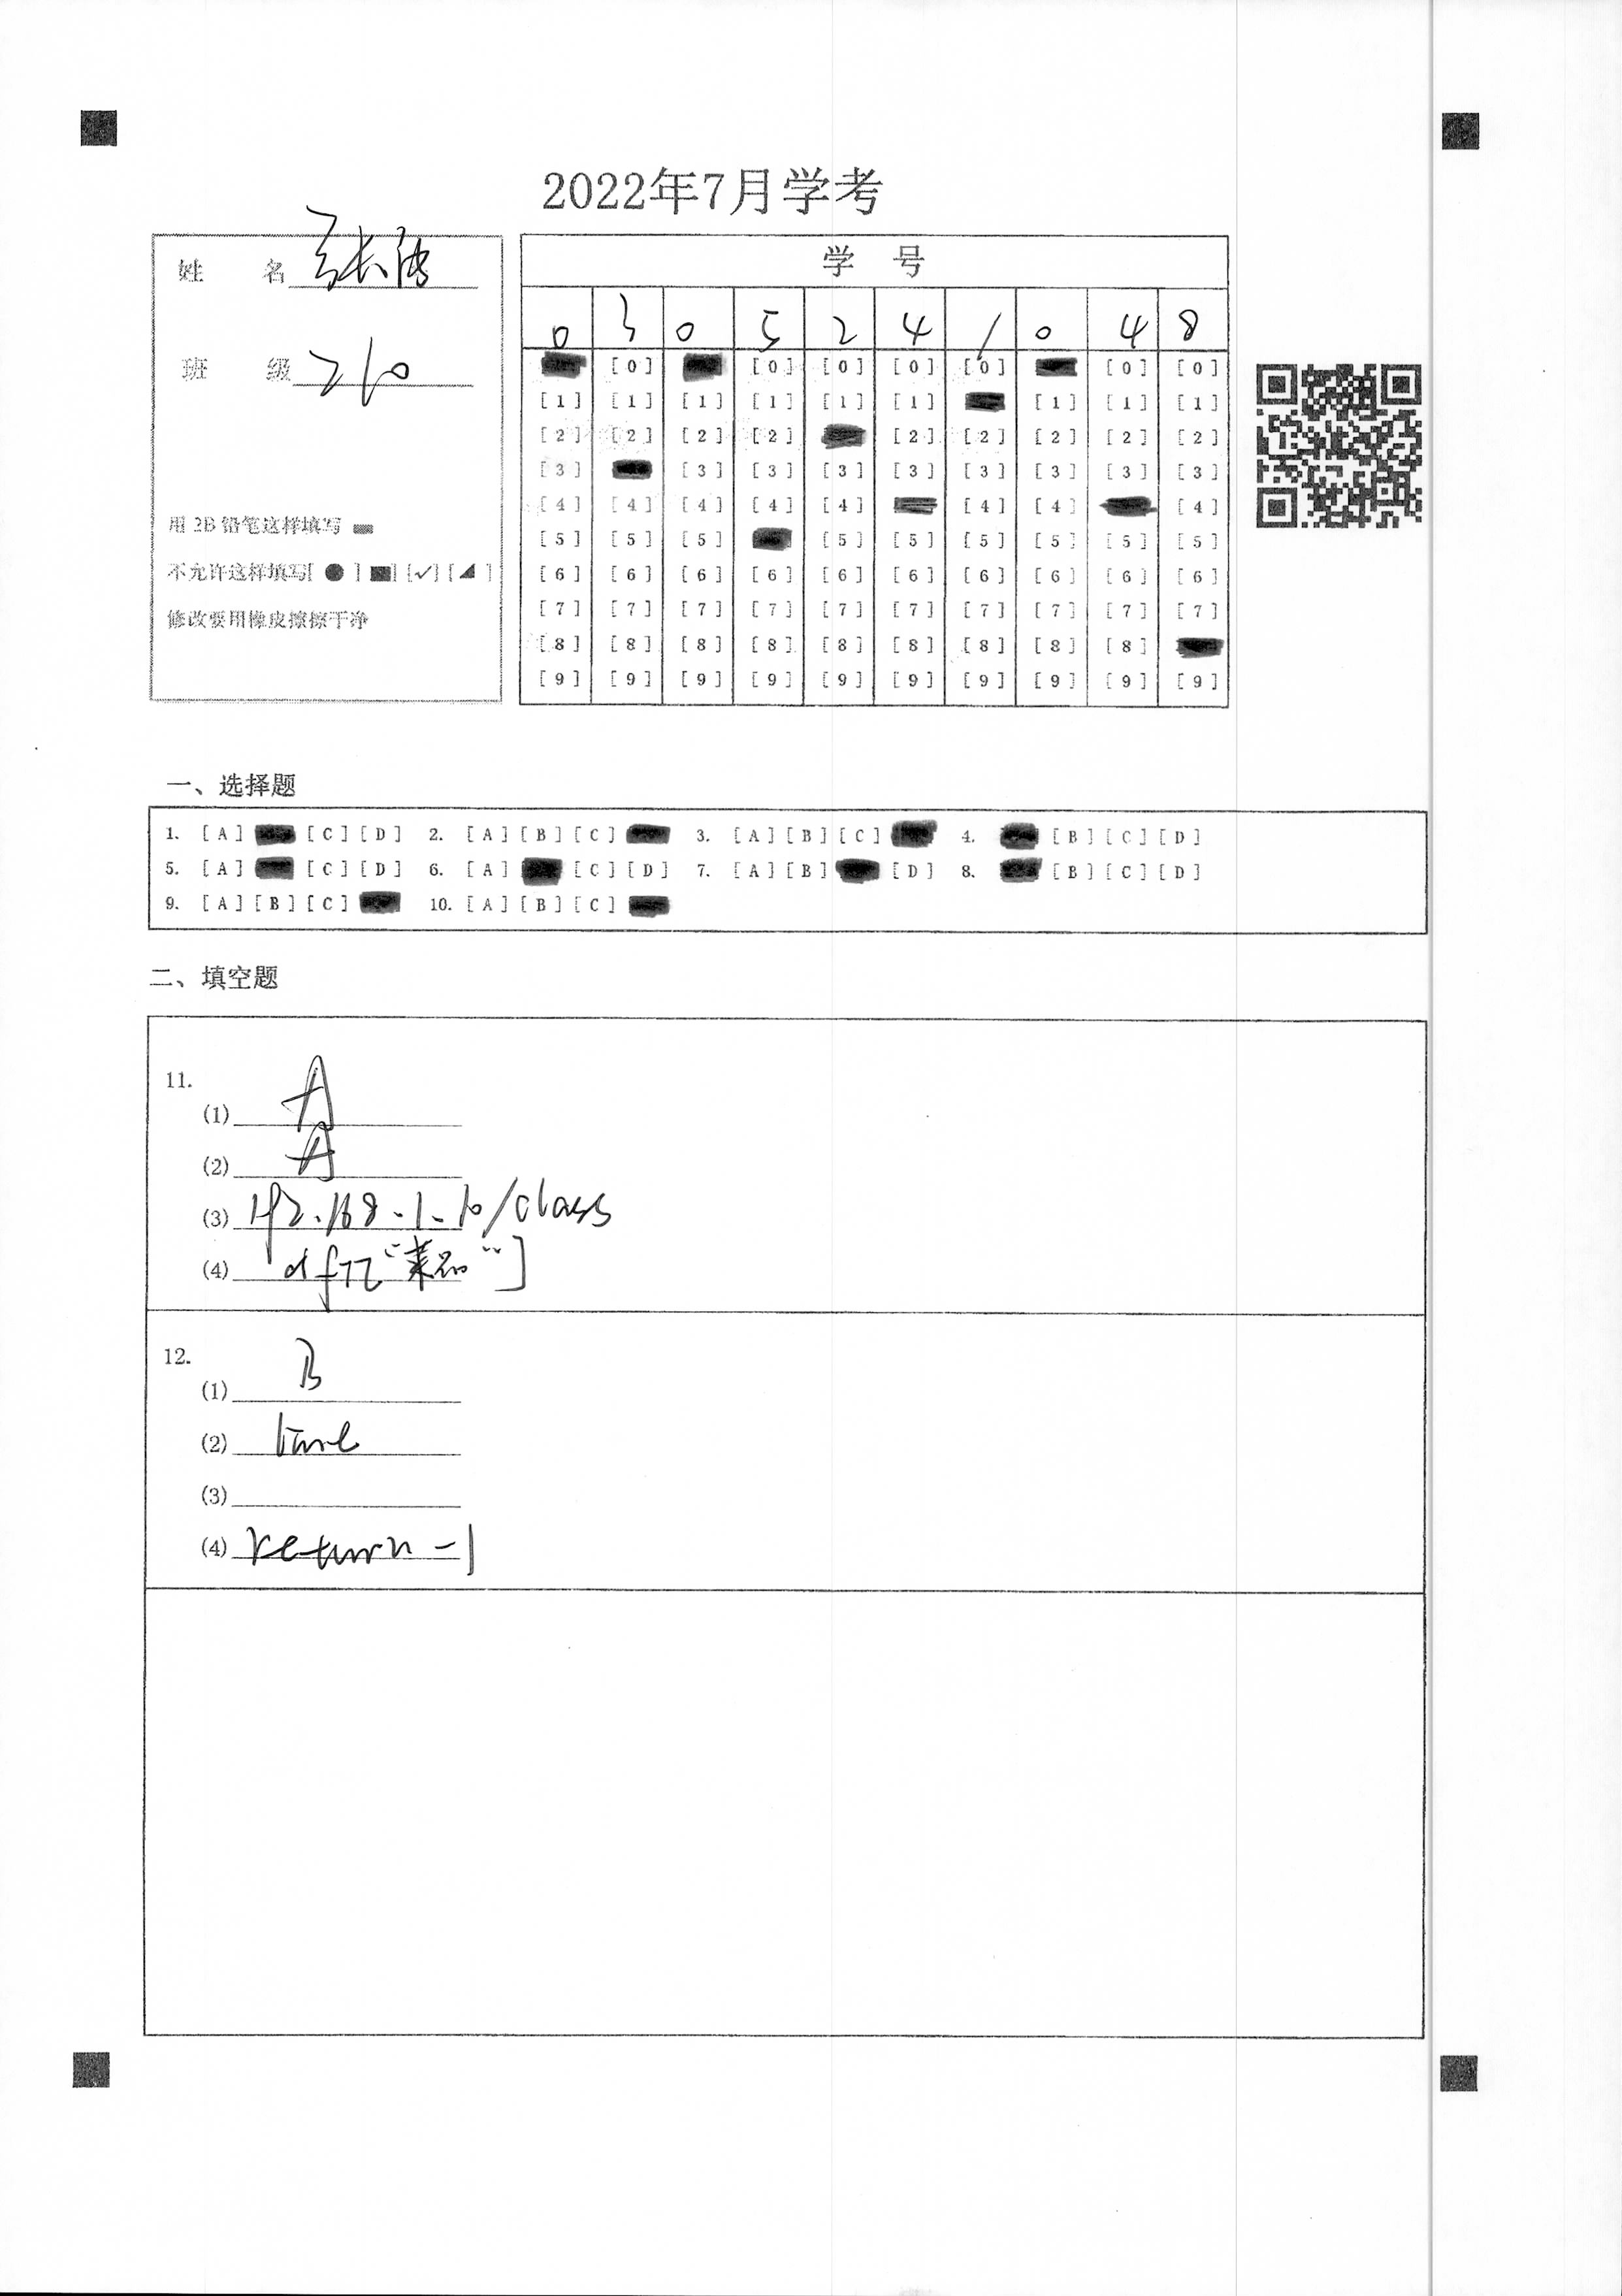 2022年7月学考
姓 名
班 级 210
用 2B 铅笔这样填写
不允许这样填写[ ● ] [■] [✓] [◢ ]
修改要用橡皮擦擦干净
学 号
0 3 0 5 2 4 1 0 4 8
[0] [0] [0] [0] [0] [0] [0]
[1] [1] [1] [1] [1] [1] [1] [1] [1]
[2] [2] [2] [2] [2] [2] [2] [2] [2]
[3] [3] [3] [3] [3] [3] [3] [3] [3]
[4] [4] [4] [4] [4] [4] [4] [4]
[5] [5] [5] [5] [5] [5] [5] [5] [5]
[6] [6] [6] [6] [6] [6] [6] [6] [6] [6]
[7] [7] [7] [7] [7] [7] [7] [7] [7] [7]
[8] [8] [8] [8] [8] [8] [8] [8] [8]
[9] [9] [9] [9] [9] [9] [9] [9] [9] [9]
一、选择题
1. [A] [C] [D] 2. [A] [B] [C] 3. [A] [B] [C] 4. [B] [C] [D]
5. [A] [C] [D] 6. [A] [C] [D] 7. [A] [B] [D] 8. [B] [C] [D]
9. [A] [B] [C] 10. [A] [B] [C]
二、填空题
11.
(1) A
(2) A
(3) 192.168.1.10/class
(4) df1["菜品"]
12.
(1) B
(2)
(3)
(4) return -1